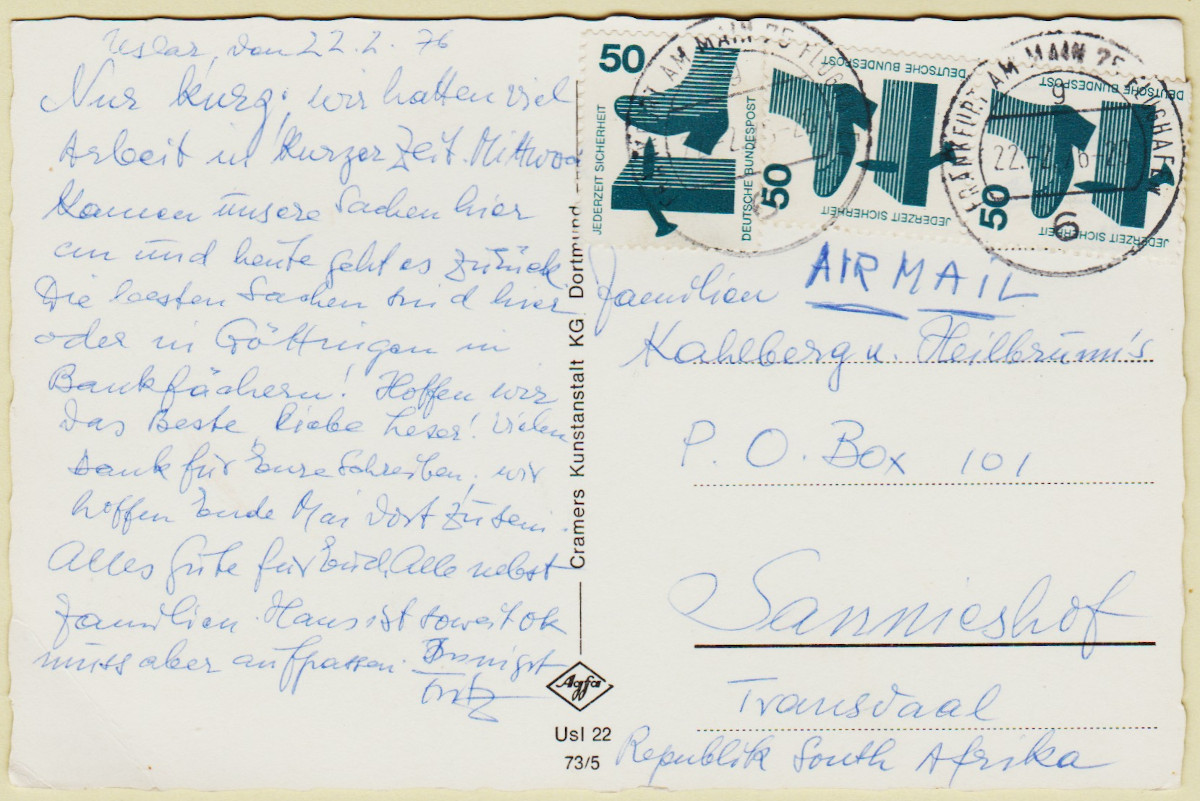 Uslar, den 22.2.76
Nur kurz; wir hatten viel
Arbeit in kurzer Zeit. Mittwoch
kamen unsere Sachen hier
an und heute geht es zurück
Die besten Sachen sind hier
oder in Göttingen in
Bankfächern! Hoffen wir
das Beste, liebe Leser! Vielen
Dank für Eure Schreiben, wir
hoffen Ende Mai dort zu sein.
Alles Gute für Euch Alle nebst
Familien. Hans ist soweit ok
muss aber aufpassen. Innigst
Fritz
Cramers Kunstanstalt KG Dortmund
Agfa
Usl 22
73/5
50
JEDERZEIT SICHERHEIT
DEUTSCHE BUNDESPOST
50
JEDERZEIT SICHERHEIT
DEUTSCHE BUNDESPOST
50
JEDERZEIT SICHERHEIT
DEUTSCHE BUNDESPOST
AM MAIN 75 FLUG
g
FRANKFURT AM MAIN 75 FLUGHAFEN
g
6
AIR MAIL
Familien
Kahlberg u. Heilbrunn's
P. O. Box 101
Sannieshof
Transvaal
Republik South Afrika